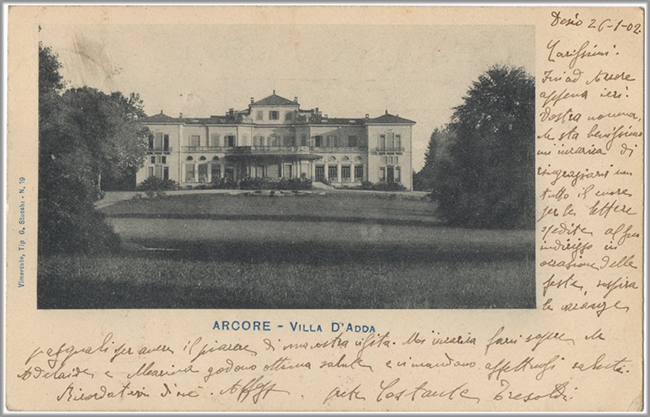 Desio 26-1-02.
Carissimi.
Fui ad Arcore
appena ieri.
Vostra nonna,
che sta benissimo
mi incarica di
ringraziarvi con
tutto il cuore
per le lettere
spedite al suo
indirizzo in
occasione delle
feste, sospira
le vacanze
pasquali per avere il piacere di una vostra visita. Mi incarica farvi sapere che
Adelaide e Marina godono ottima salute e vi mandano affettuosi saluti.
Ricordatevi di noi. Aff. Costante Tresoldi
ARCORE - VILLA D'ADDA
Vimercate, Tip. G. Stucchi - N. 19